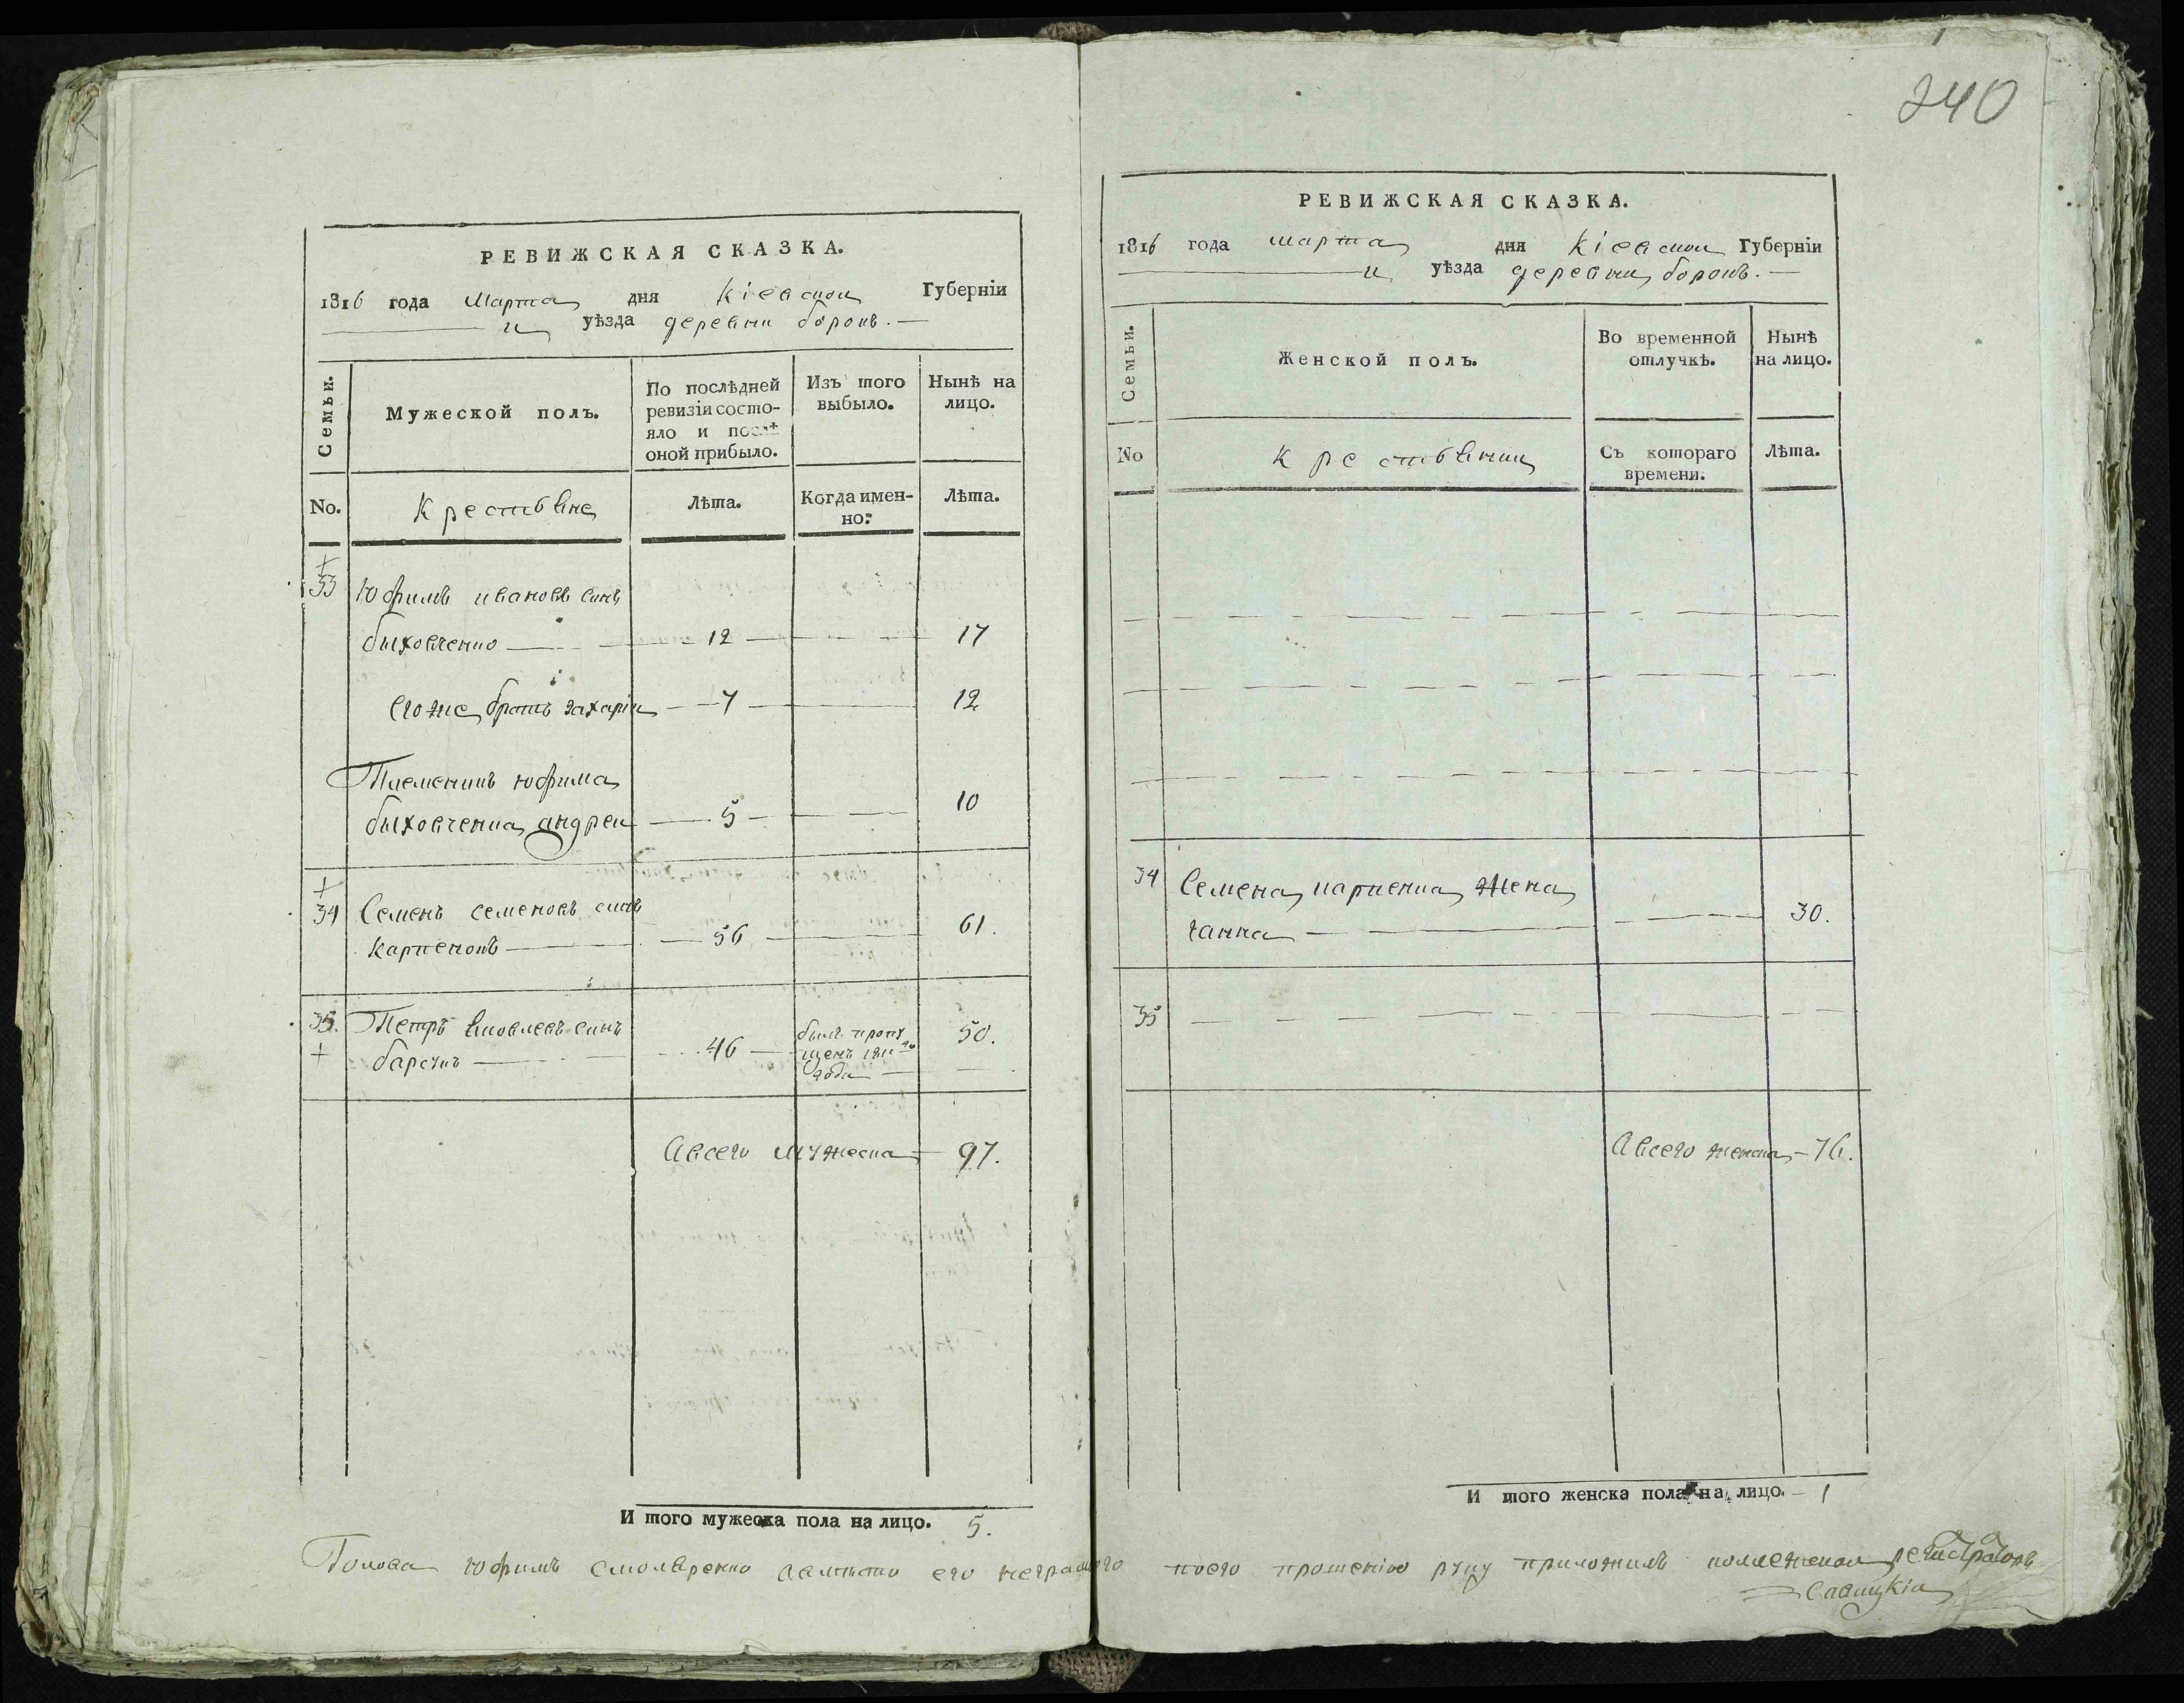 РЕВИЖСКАЯ СКАЗКА.
1816 года Марта дня Кіевской Губерніи
уѣзда деревни борокъ.
Семьи.
Мужеской полъ.
По послѣдней
ревизіи состо-
яло и послѣ
оной прибыло.
Изъ того
выбыло.
Нынѣ на
лицо.
No.
Крестьяне
Лѣта.
Когда имен-
но:
Лѣта.
33 Юфимъ ивановъ синъ
быховченко 12 17
его же братъ захарій 7 12
Племеникъ юфима
быховченка андрей 5 10
34 Семенъ семеновъ синъ
карпенокъ 56 61.
35. Петръ яковлевъ синъ
барсукъ 46 былъ пропу
щенъ 1811го
года 50.
Авсего мужеска 97.
И того мужеска пола на лицо. 5.
240
РЕВИЖСКАЯ СКАЗКА.
1816 года марта дня Кіевской Губерніи
уѣзда деревни борокъ.
Семьи.
Женской полъ.
Во временной
отлучкѣ.
Нынѣ
на лицо.
No
Крестьянки
Съ котораго
времени.
Лѣта.
34 Семена карпенка жена
ганна 30.
35
Авсего женска 76.
И того женска пола на лицо. 1
Голова юфимъ смоляренко авместо его неграмотного поего прошенію руку приложилъ колежской регистраторъ
Савицкій